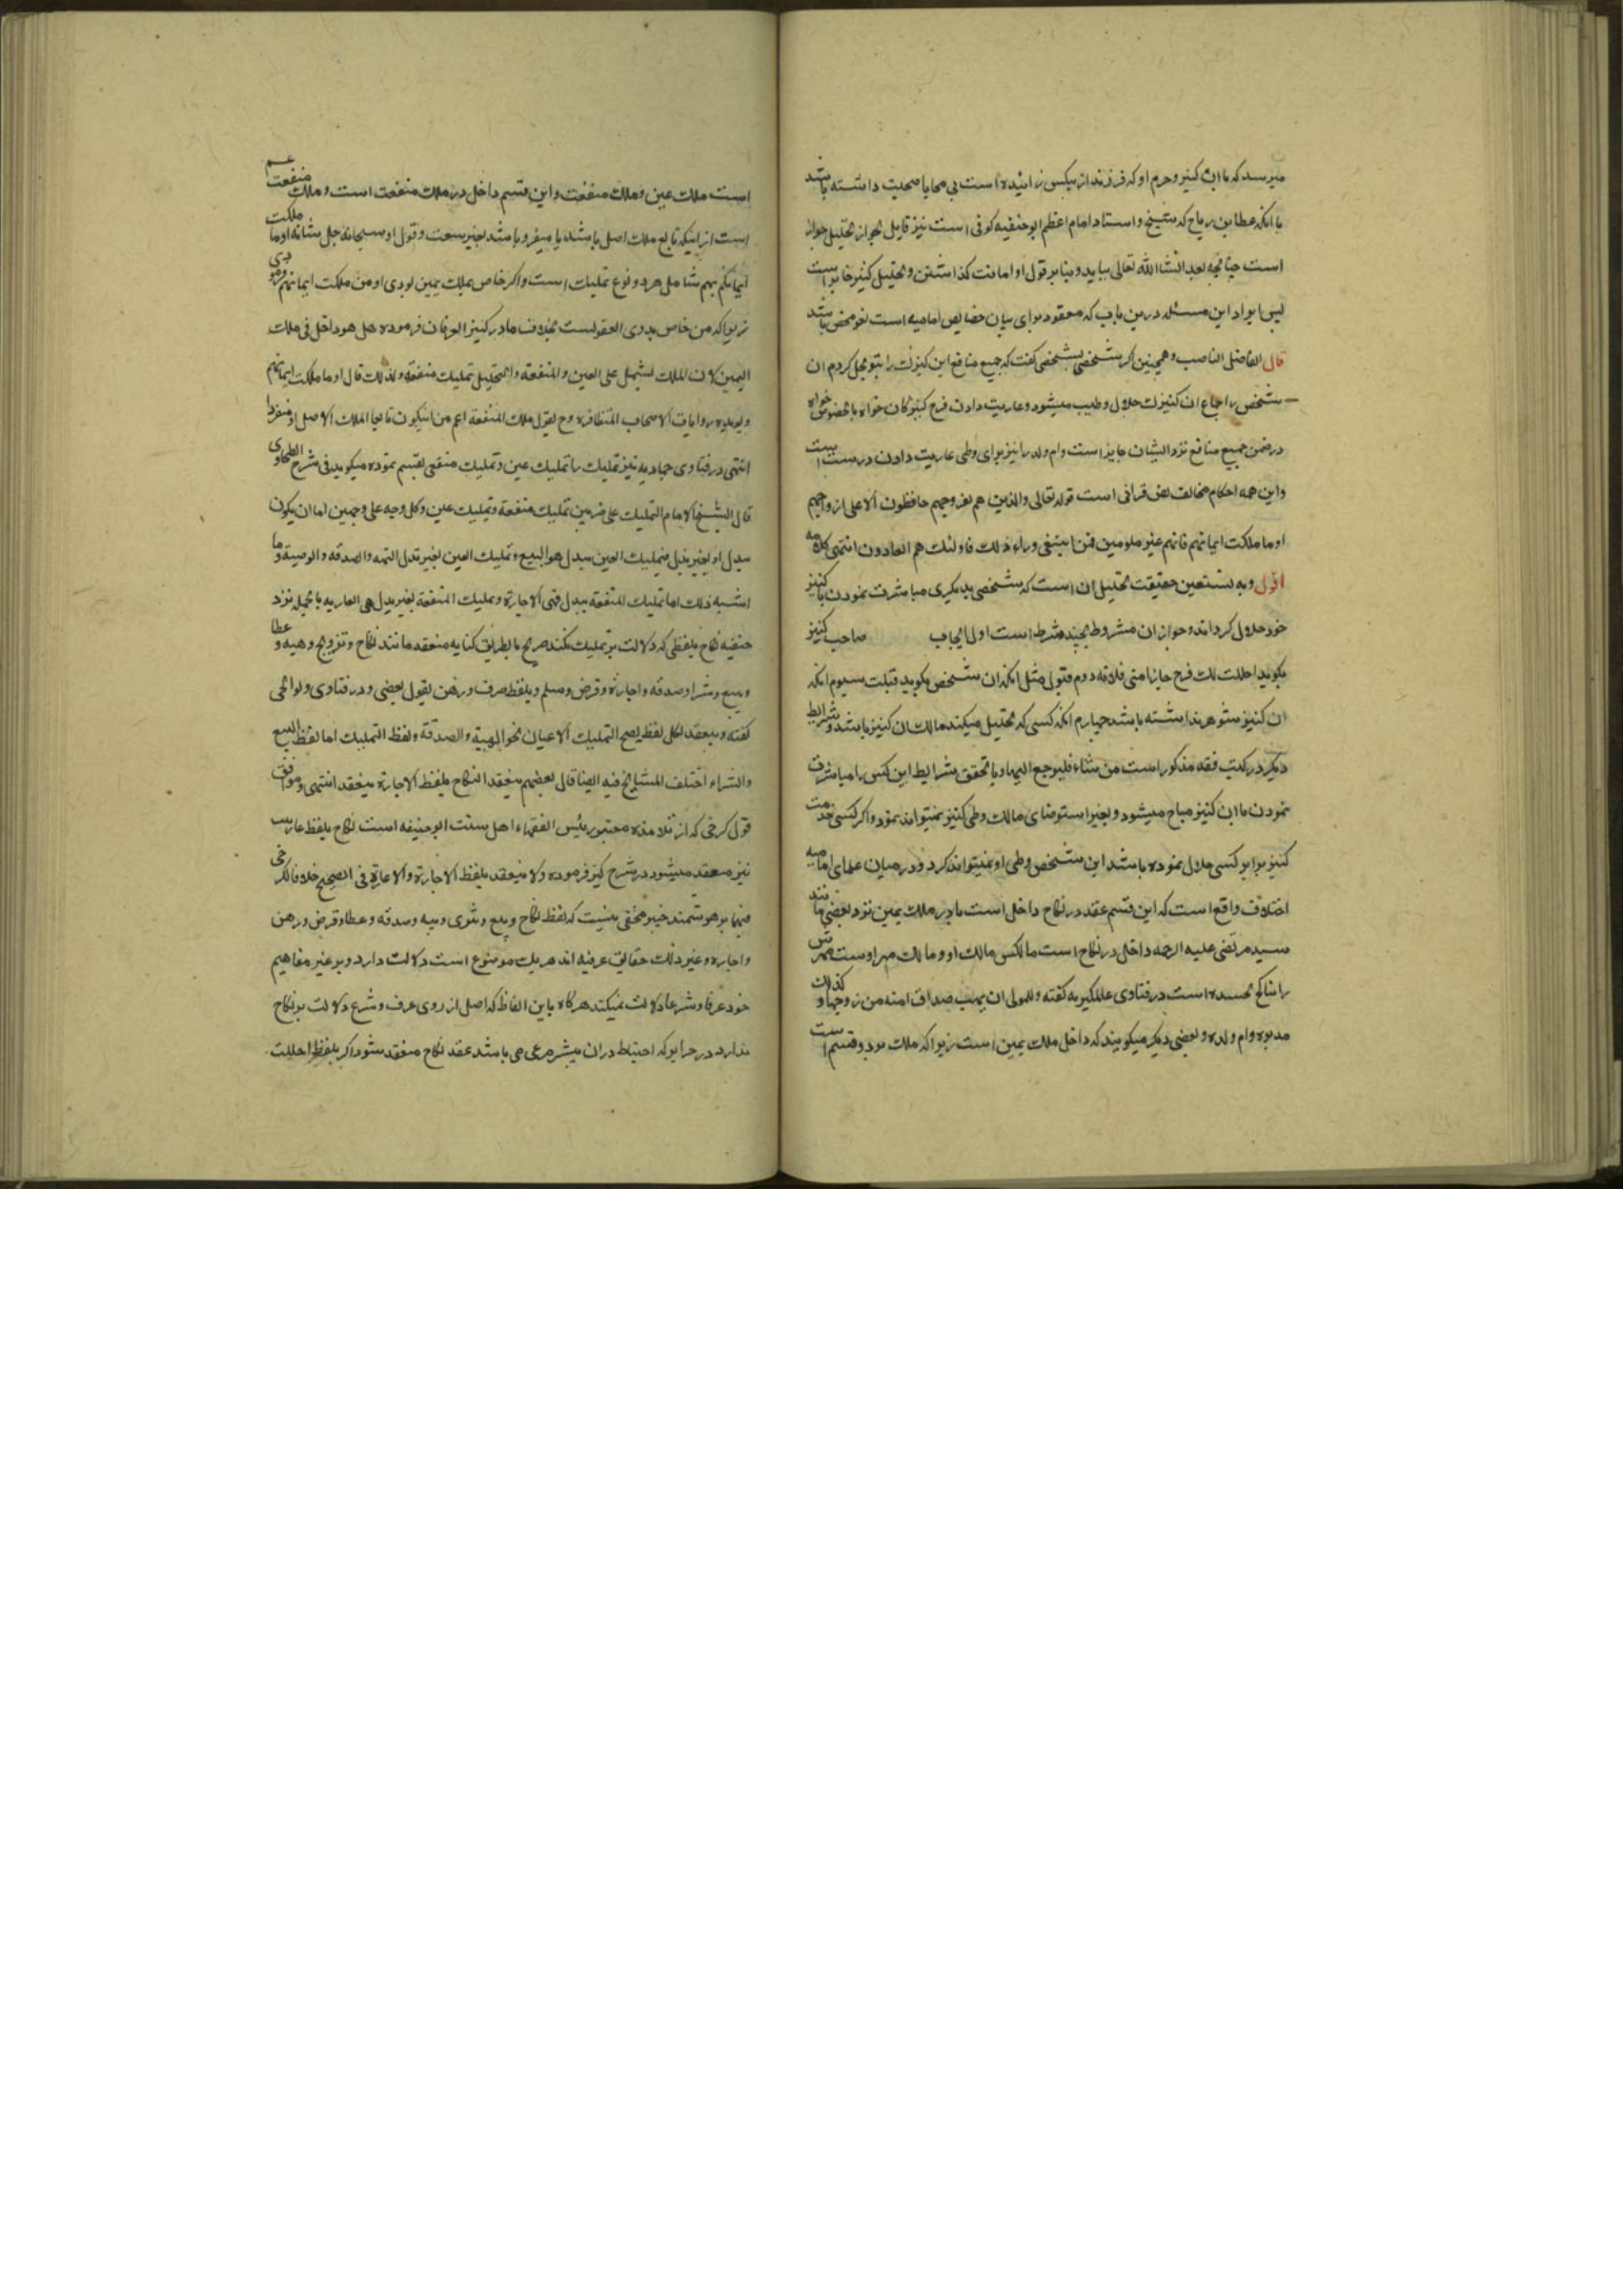 میرسد که با ان کنیز و حرم او که فرزند از یکس زائیده است بی محابا صحبت داشته باشد
با انکه عطا بن رباح که شیخ و استاد امام اعظم ابوحنفیه کوفی است نیز قایل بجواز تحلیل جواز
است چنانچه بعد انشا الله تعالی بیاید و بنا بر قول او امانت کذاشتن و تحلیل کنیز جا
پس ایراد این مسئله درین باب که معقود برای بیان خصایص امامیه است لغو محض باشد
قال الفاضل الناصب و همچنین اکر شخصی بشخصی کفت که جمیع منافع این کنیزک را بتو بحل کردم ان
شخص را جماع ان کنیزک حلال و طیب میشود و عاریت دادن فرج کنیزکان خواه بالخصوص خواه
در ضمن جمیع منافع نزد ایشان جایز است وام ولد را نیز برای وطی عاریت دادن درست است
واین همه احکام مخالف نص قرانی است قوله تعالی والذین هم لفروجهم حافظون الا علی ازواجهم
او ما ملکت ایمانهم فانهم غیر ملومین فمن ابتغی وراء ذلک فاولئک هم العادون انتهی کلامه
اقول وبه نستعین حقیقت تحلیل ان است که شخصی بدیکری مباشرت نمودن با کنیز
خود حلال کرداند و جواز ان مشروط بچند شرط است اول ایجاب صاحب کنیز
بکوید احللت لک فرج جاریتی فلانه دوم قبولی مثل انکه ان شخص بکوید قبلت سیوم انکه
ان کنیز شوهر نداشته باشد چهارم انکه کسی که تحلیل میکند مالک ان کنیز باشد و شرایط
دیکر در کتب فقه مذکور است من شاء فلیرجع الیها و با تحقق شرایط این کس را مباشرت
نمودن با ان کنیز مباح میشود و بغیر استرضای مالک وطی کنیز نمیتواند نمود و اکر کسی خدمت
کنیز برای کسی حلال نموده باشد این شخص وطی او نمیتواند کرد و در میان علمای امامیه
اختلاف واقع است که این قسم عقد در نکاح داخل است یا در ملک یمین نزد بعضی مانند
سید مرتضی علیه الرحمه داخل در نکاح است مالکس مالک او و مالک مهر اوست مهرش
را بناکح بخشیده است در فتاوی عالمکیریه کفته وللمولی ان یهب صداق امته من زوجها وکذلک
مدبره وام ولده و بعضی دیکر میکویند که داخل ملک یمین است زیرا که ملک بر دو قسم است
است ملک عین و ملک منفعت و این قسم داخل در ملک منفعت است و ملک منفعت عم
است از اینکه تابع ملک اصل باشد یا منفرد باشد بغیر تبعیت و قول او سبحانه جل شانه اوما ملکت
ایمانکم بهم شامل هر دو نوع تملیک است واکر خاص بملک یمین بودی او من ملکت ایمانهم فرمودی
زیراکه من خاص بذوی العقولست بخلاف ما در کنیز العرفان فرموده هل هو داخل فی ملک
الیمین لان الملک یشتمل علی العین والمنفعة والتحلیل تملیک منفعة ولذلک قال اوما ملکت ایمانهم
ویؤیده روایات الاصحاب المتظافره وح یقول ملک المنفعة اعم من ان یکون تابعا الملک الاصل او منفردا
انتهی در فتاوی حمادیه نیز تملیک را تملیک عین و تملیک منفعی تقسیم نموده میکوید فی شرح الطحاوی
قال الشیخ الامام التملیک علی ضربین تملیک منفعة وتملیک عین وکل وجه علی وجهین اما ان یکون
ببدل او بغیر بدل فتملیک العین ببدل هو البیع وتملیک العین بغیر بدل الهبه والصدقه والوصیة وما
اشبه ذلک اما تملیک المنفعة ببدل فهی الاجارة وتملیک المنفعة بغیر بدل هی العاریه بالجمله نزد
حنفیه نکاح بلفظی که دلالت بر تملیک بکند صریح یا بطریق کنایه منعقد مانند نکاح و تزویج و هبه و عطا
و بیع و شرا و صدقه و اجاره و قرض و سلم و بلفظ صرف و رهن بقول بعضی و در فتاوی ولوالجی
کفته وینعقد لکل لفظ یصح التملیک الاعیان نحو الهبة والصدقة ولفظ التملیک اما لفظ البیع
والشراء اختلف المشایخ فیه ایضا قال بعضهم ینعقد النکاح بلفظ الاجارة ینعقد انتهی و موافق
قول کرخی که از تلامذه معتبر رئیس الفقهاء اهل سنت ابوحنیفه است نکاح بلفظ عاریت
نیز منعقد میشود در شرح کنز فرموده ولا ینعقد بلفظ الاجارة والاعارة فی الصحیح خلافا لکرخی
فیهما بر هوشمند خبیر مخفی نیست که لفظ نکاح و بیع و شری و هبه و صدقه و عطا و قرض و رهن
و اجاره و غیر ذلک حقایق عرفیه اند هر یک موضوع است دلالت دارد و بر غیر مفاهیم
خود عرفا و شرعا دلالت نمیکند هرکاه باین الفاظ که اصل از روی عرف و شرع دلالت بر نکاح
ندارد در حرایر که احتیاط دران بیشتر مرعی می باشد عقد نکاح منعقد شود اکر بلفظ احللت